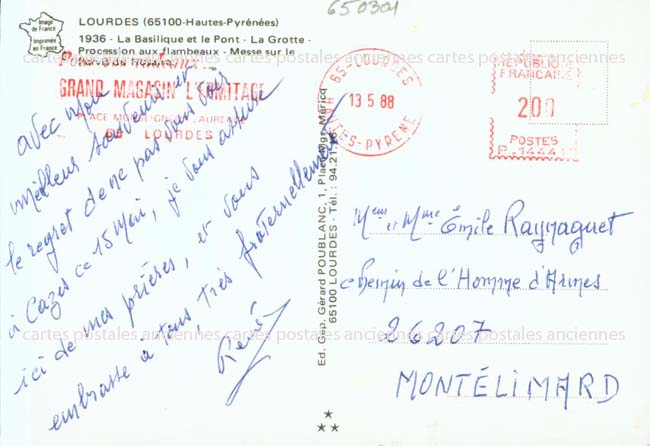 650304
Image de France
Imprimée en France
LOURDES (65100-Hautes-Pyrénées)
1936 - La Basilique et le Pont - La Grotte -
Procession aux flambeaux - Messe sur le
GRAND MAGASIN L'ERMITAGE
PLACE MONSEIGNEUR LAURENCE
65 LOURDES
65-LOURDES
13 5 88
HAUTES-PYRENEES
REPUBLIQUE
FRANCAISE
200
POSTES
avec mon
meilleur souvenir et
le regret de ne pas vous voir
à Cazes ce 15 Mai, je vous assure
ici de mes prières, et vous
embrasse à tous, très fraternellement
René
Ed. Cap. Gérard POUBLANC, 1, Place Mgr Méricq
65100 LOURDES - Tél. : 94.21.
Mr et Mme Émile Raynaguet
chemin de l'Homme d'Armes
26207
MONTÉLIMARD
cartes postales anciennes cartes postales anciennes cartes postales anciennes
cartes postales anciennes cartes postales anciennes cartes postales anciennes